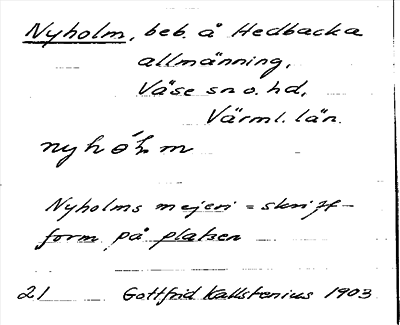 Nyholm, beb. å Hedbacka
allmänning,
Väse sn o. hd,
Värml. län.
nyhóħm
Nyholms mejeri = skrift-
form på platsen
21 Gottfrid Kallstenius 1903